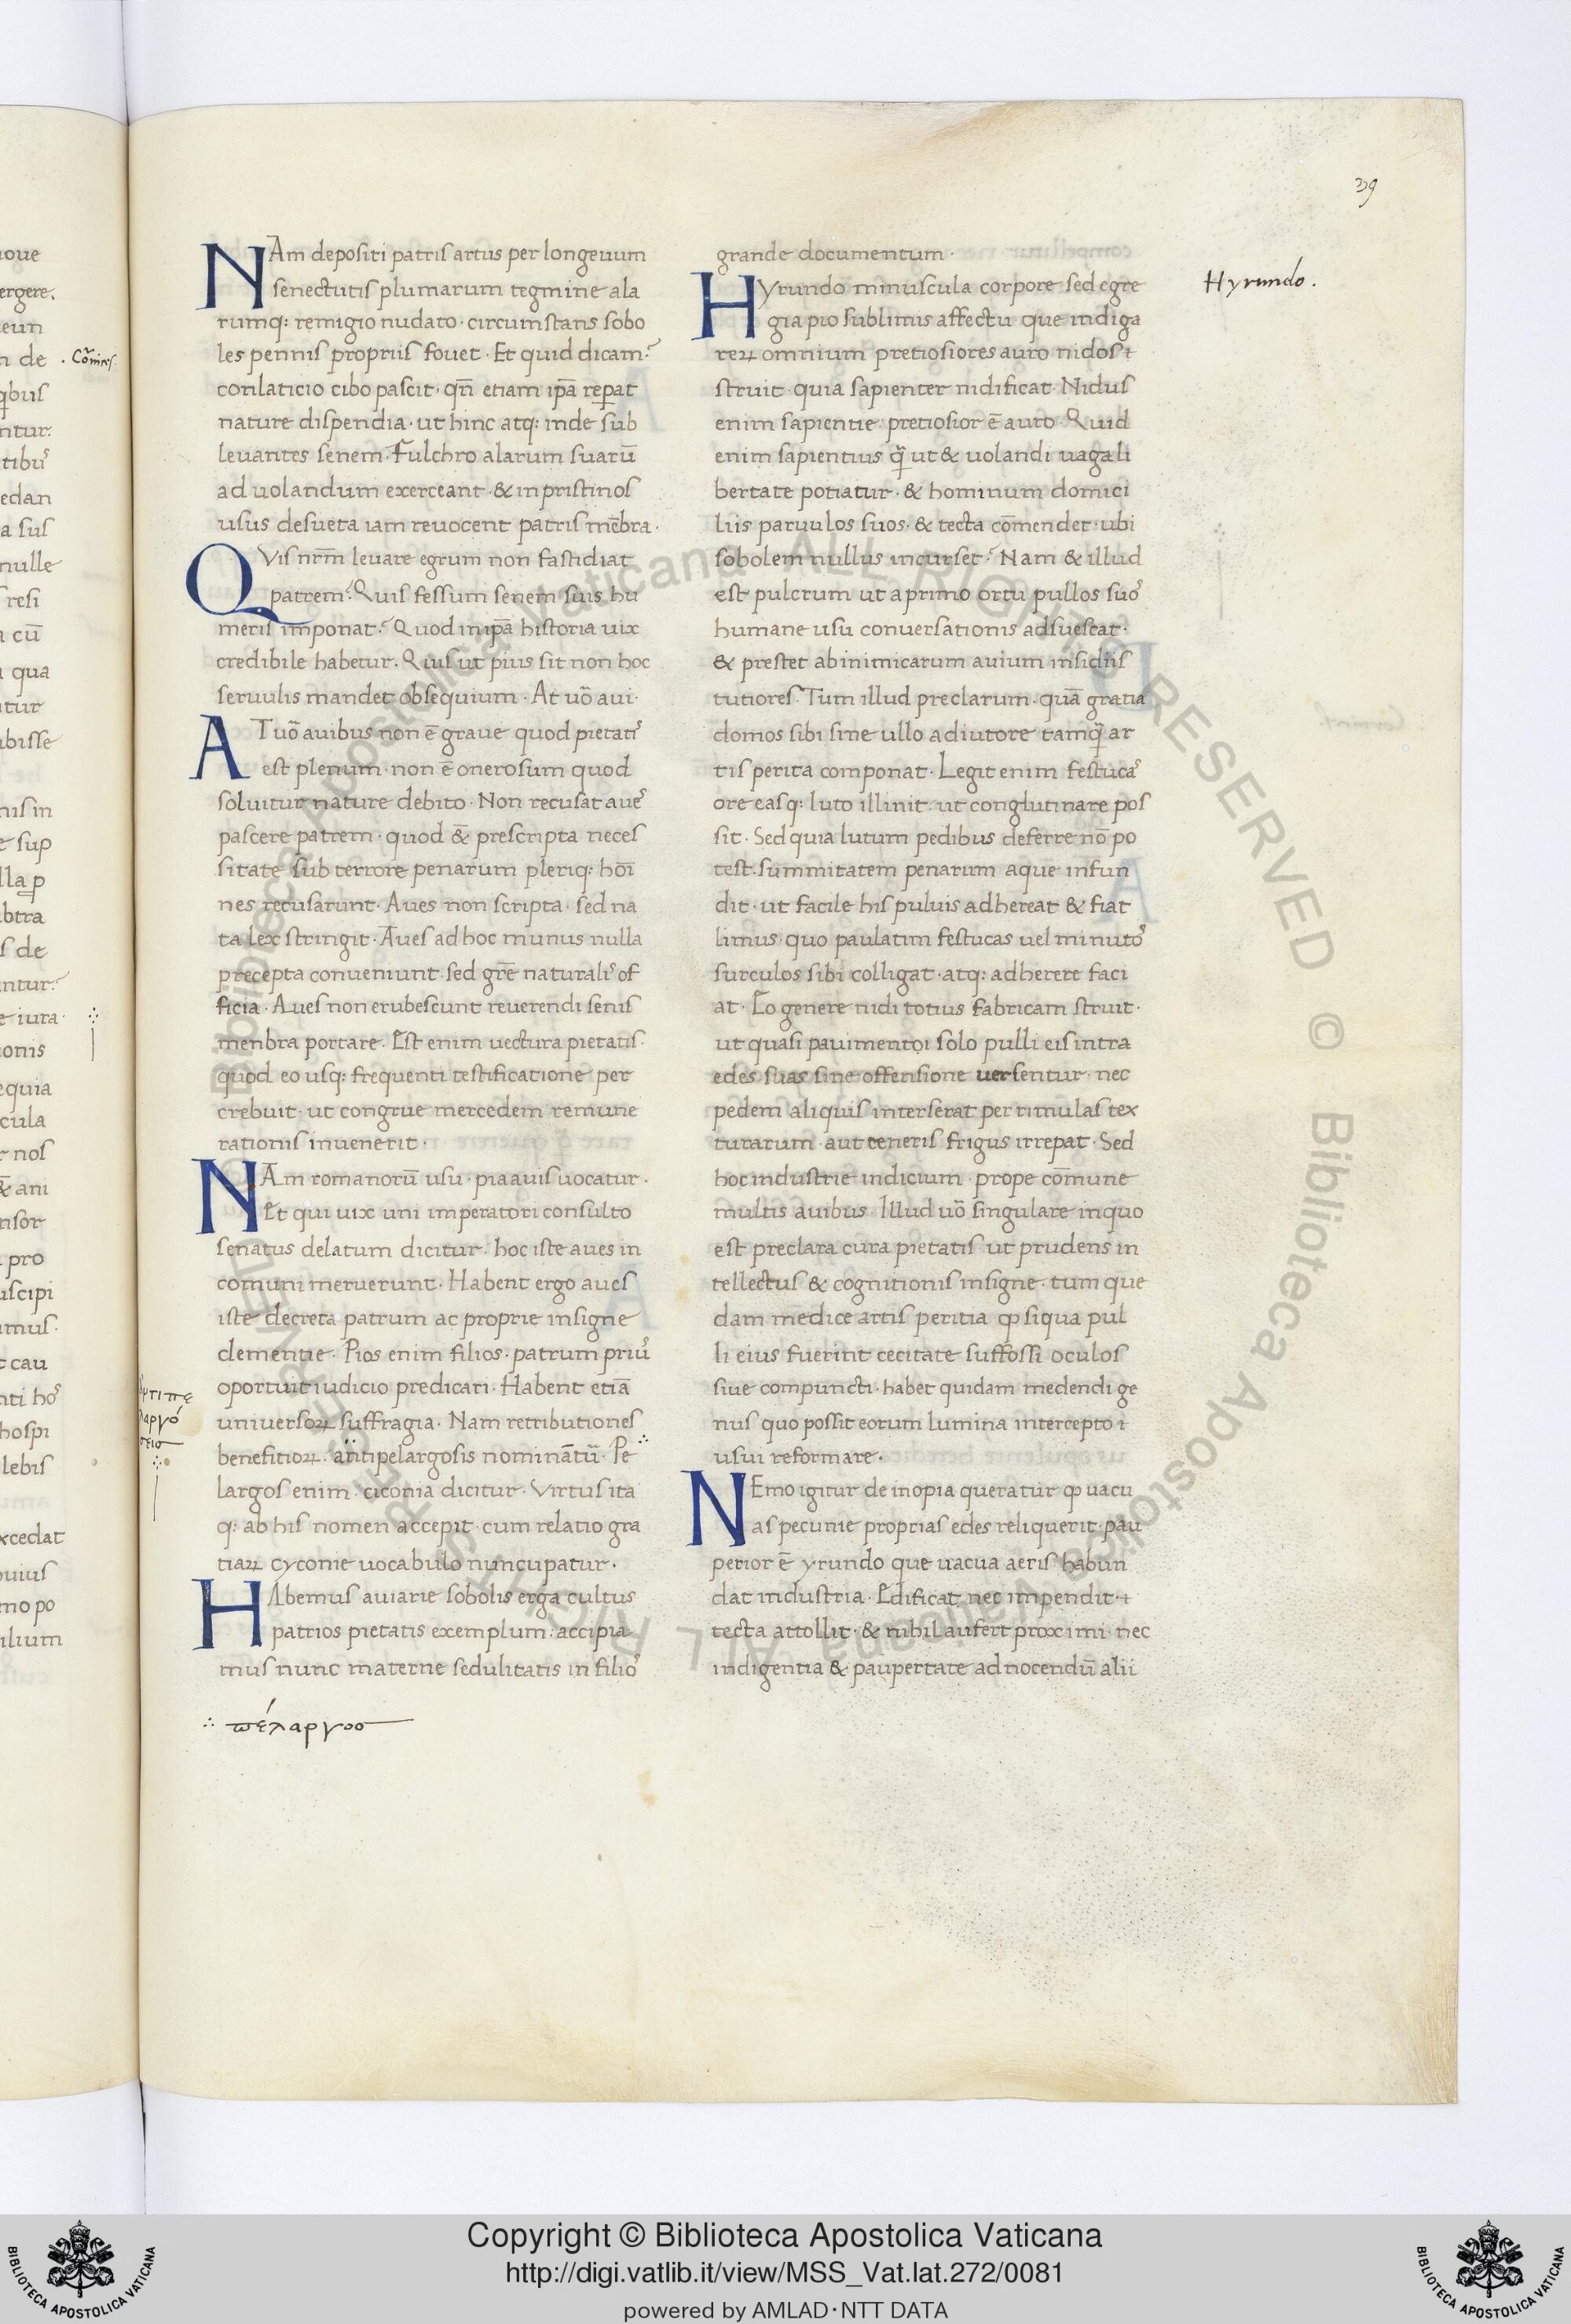 39
NAm depositi patris artus per longeuum
senectutis plumarum tegmine ala
rumq: remigio nudato · circumstans sobo
les pennis propriis fouet · Et quid dicam?
conlaticio cibo pascit · qñ etiam ip̄a rep̱at
nature dispendia · ut hinc atq: inde sub
leuantes senem · Fulchro alarum suarū
ad uolandum exerceant · & in pristinos
usus desueta iam reuocent patris mēbra ·
QVis nr̄m leuare egrum non fastidiat
patrem? Quis fessum senem suis hu
meris imponat? Quod in ip̄a historia uix
credibile habetur · Quis ut pius sit non hoc
seruulis mandet obsequium · At uō aui·
AT uō auibus non ē graue quod pietatis
est plenum · non ē onerosum quod
soluitur nature debito · Non recusat aues
pascere patrem · quod & prescripta neces
sitate sub terrore penarum pleriq: hoī
nes recusarunt · Aues non scripta · sed na
ta lex stringit · Aues ad hoc munus nulla
precepta conueniunt · sed grē naturalis of
ficia · Aues non erubescunt reuerendi senis
menbra portare · Est enim uectura pietatis ·
quod eo usq: frequenti testificatione per
crebuit · ut congrue mercedem remune
rationis inuenerit ·
NAm romanorū usu · pia auis uocatur ·
Et qui uix uni imperatori consulto
senatus delatum dicitur · hoc iste aues in
comuni meruerunt · Habent ergo aues
iste decreta patrum ac proprie insigne
clementie · Pios enim filios · patrum prius
oportuit iudicio predicari · Habent etiā
uniuersoꝝ suffragia · Nam retributiones
benefitioꝝ · antipelargosis nominātur · Pe
largos enim · ciconia dicitur · Virtus ita
q: ab his nomen accepit · cum relatio gra
tiaꝝ cyconie uocabulo nuncupatur ·
HAbemus auiarie sobolis erga cultus
patrios pietatis exemplum : accipia
mus nunc materne sedulitatis in filios
∴ πέλαργοσ
grande documentum ·
Hyrundo .
HYrundo minuscula corpore sed egre
gia pio sublimis affectu · que indiga
reꝝ omnium pretiosiores auro nidos i
struit · quia sapienter nidificat · Nidus
enim sapientie · pretiosior ē auro · Quid
enim sapientius q̄ ut & uolandi uaga li
bertate potiatur · & hominum domici
liis paruulos suos · & tecta cōmendet · ubi
sobolem nullus incurset? Nam & illud
est pulcrum ut a primo ortu pullos suos
humane usu conuersationis adsuescat ·
& prestet ab inimicarum auium insidiis
tutiores · Tum illud preclarum · quā gratia
domos sibi sine ullo adiutore tamq̄ ar
tis perita componat · Legit enim festucas
ore easq: luto illinit · ut conglutinare pos
sit · Sed quia lutum pedibus deferre nō po
test · summitatem penarum aque infun
dit · ut facile his puluis adhereat & fiat
limus · quo paulatim festucas uel minutos
surculos sibi colligat · atq: adherere faci
at · Eo genere nidi totius fabricam struit ·
ut quasi pauimentoi solo pulli eis intra
edes suas sine offensione uersentur · nec
pedem aliquis interserat per rimulas tex
turarum · aut teneris frigus irrepat · Sed
hoc industrie indicium · prope cōmune
multis auibus · Illud uō singulare in quo
est preclara cura pietatis ut prudens in
tellectus & cognitionis insigne · tum que
dam medice artis peritia ꝙ siqua pul
li eius fuerint cecitate suffossi oculos
siue compuncti · habet quidam medendi ge
nus quo possit eorum lumina intercepto i
usui reformare ·
NEmo igitur de inopia queratur ꝙ uacu
as pecunie proprias edes reliquerit · pau
perior ē yrundo que uacua aeris habun
dat industria · Edificat nec impendit ·
tecta attollit · & nihil aufert proximi · nec
indigentia & paupertate ad nocendū alii
Copyright © Biblioteca Apostolica Vaticana
http://digi.vatlib.it/view/MSS_Vat.lat.272/0081
powered by AMLAD·NTT DATA